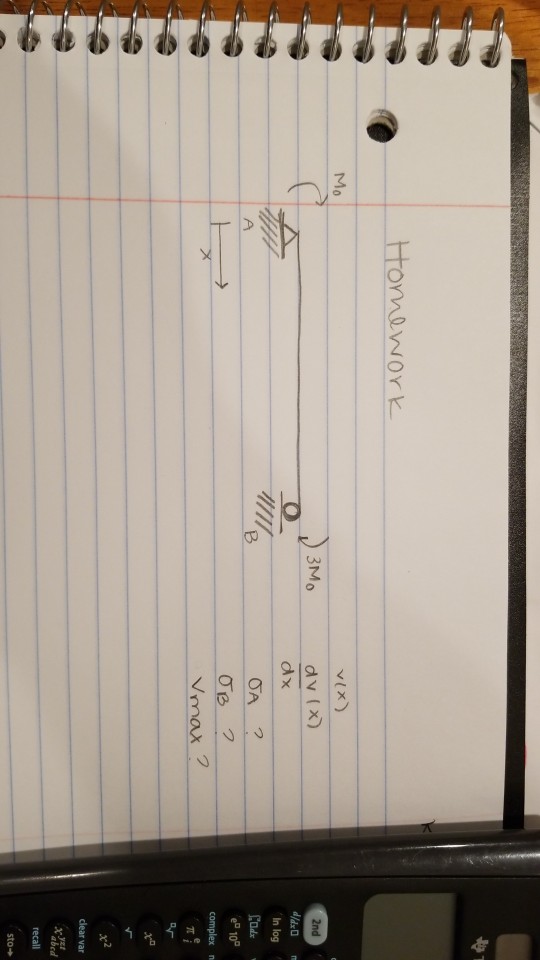 Homework
M₀
3M₀
A
B
x
v(x)
dv(x)
dx
σA ?
σB ?
Vmax ?
K
2nd
d/dx
ln log
∫dx
eⁿ 10ⁿ
complex
π e i
xⁿ
√
x²
clear var
x yzt abcd
recall
sto→